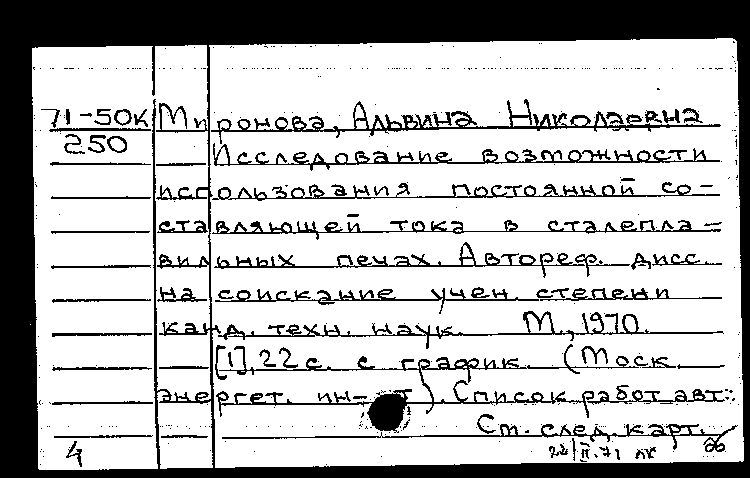 71-50к Миронова, Альвина Николаевна
250 Исследование возможности
использования постоянной со-
ставляющей тока в сталепла-
вильных печах. Автореф. дисс.
на соискание учен. степени
канд. техн. наук. М., 1970.
[1], 22 с. с график. (Моск.
энергет. ин-т). Список работ авт.:
См. след. карт.
4